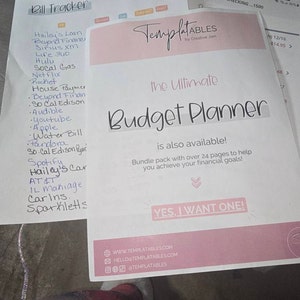 Bill Tracker
Hailey's Loan
Beyond Finance
Sirius xm
Life Ins
Hulu
Socal Gas
Netflix
Rocket
House Paymen
Beyond Finan
So Cal Edison
Audible
Youtube
Apple
Water Bill
Pandora
So Cal Edison
Spotify
Hailey's Car
AT&T
Car ins
Sparkletts
TemplatABLES
The Ultimate
Budget Planner
is also available!
Bundle pack with over 24 pages to help
you achieve your financial goals!
YES, I WANT ONE!
WWW.TEMPLATABLES.COM
HELLO@TEMPLATABLES.COM
@TEMPLATABLES